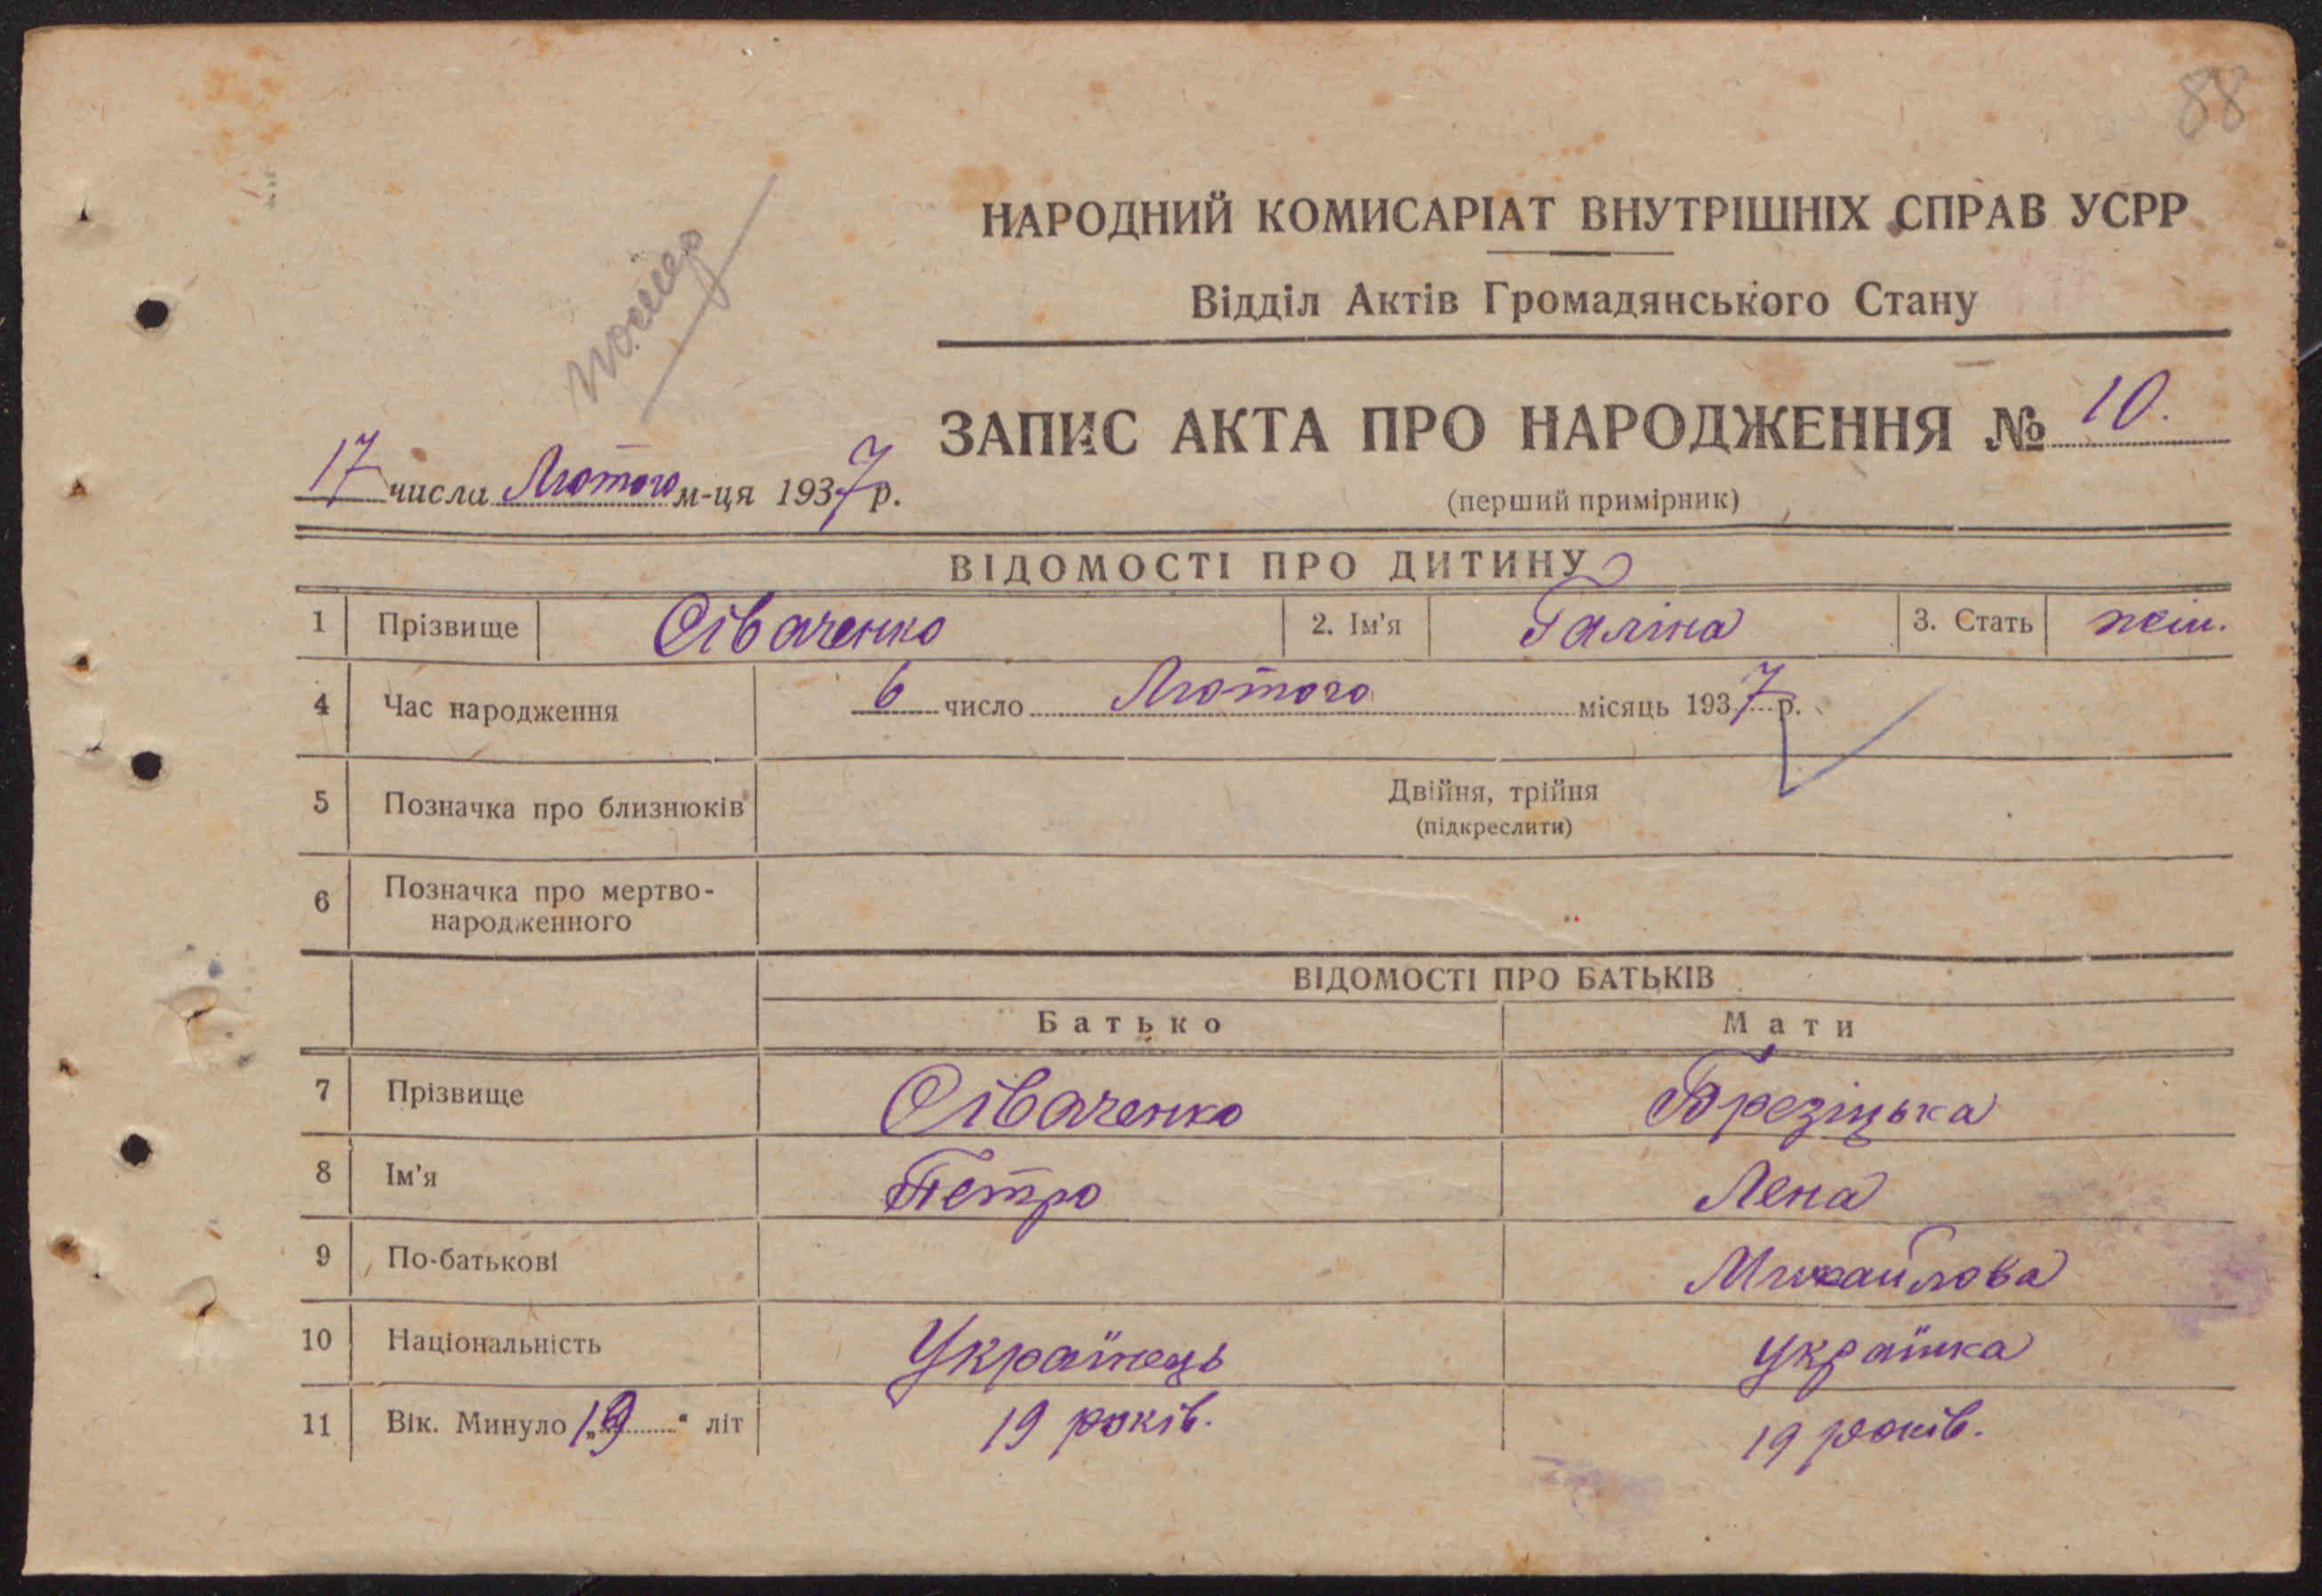 88
НАРОДНИЙ КОМИСАРІАТ ВНУТРІШНІХ СПРАВ УСРР
Відділ Актів Громадянського Стану
ЗАПИС АКТА ПРО НАРОДЖЕННЯ № 10.
17 числа Лютого м-ця 1937 р.
(перший примірник)
ВІДОМОСТІ ПРО ДИТИНУ
1 Прізвище Сіваченко 2. Ім'я Галіна 3. Стать жін.
4 Час народження 6 число Лютого місяць 1937 р.
5 Позначка про близнюків Двійня, трійня
(підкреслити)
6 Позначка про мертво-
народженного
ВІДОМОСТІ ПРО БАТЬКІВ
Батько Мати
7 Прізвище Сіваченко Брезіцька
8 Ім'я Петро Лена
9 По-батькові Михайлова
10 Національність Українець українка
11 Вік. Минуло „19“ літ 19 років. 19 років.